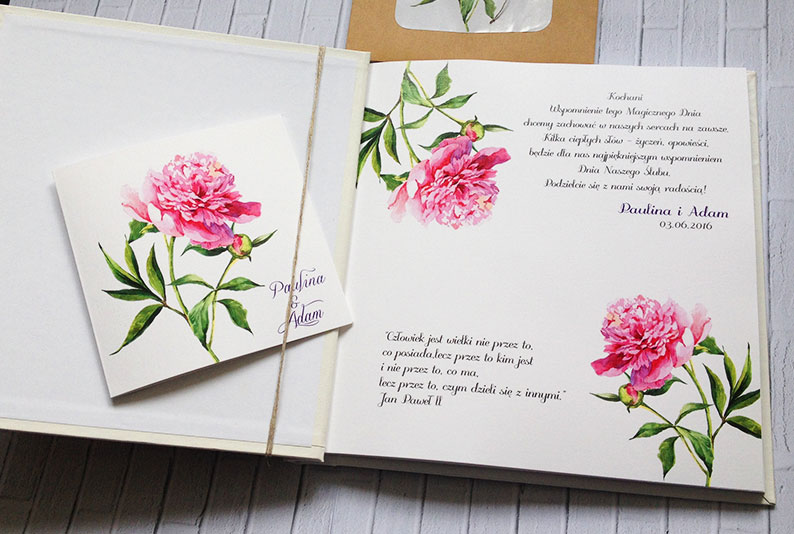 Paulina
&
Adam
Kochani
Wspomnienie tego Magicznego Dnia
chcemy zachować w naszych sercach na zawsze.
Kilka ciepłych słów - życzeń, opowieści,
będzie dla nas najpiękniejszym wspomnieniem
Dnia Naszego Ślubu.
Podzielcie się z nami swoją radością!
Paulina i Adam
03.06.2016
"Człowiek jest wielki nie przez to,
co posiada,lecz przez to kim jest
i nie przez to, co ma,
lecz przez to, czym dzieli się z innymi."
Jan Paweł II